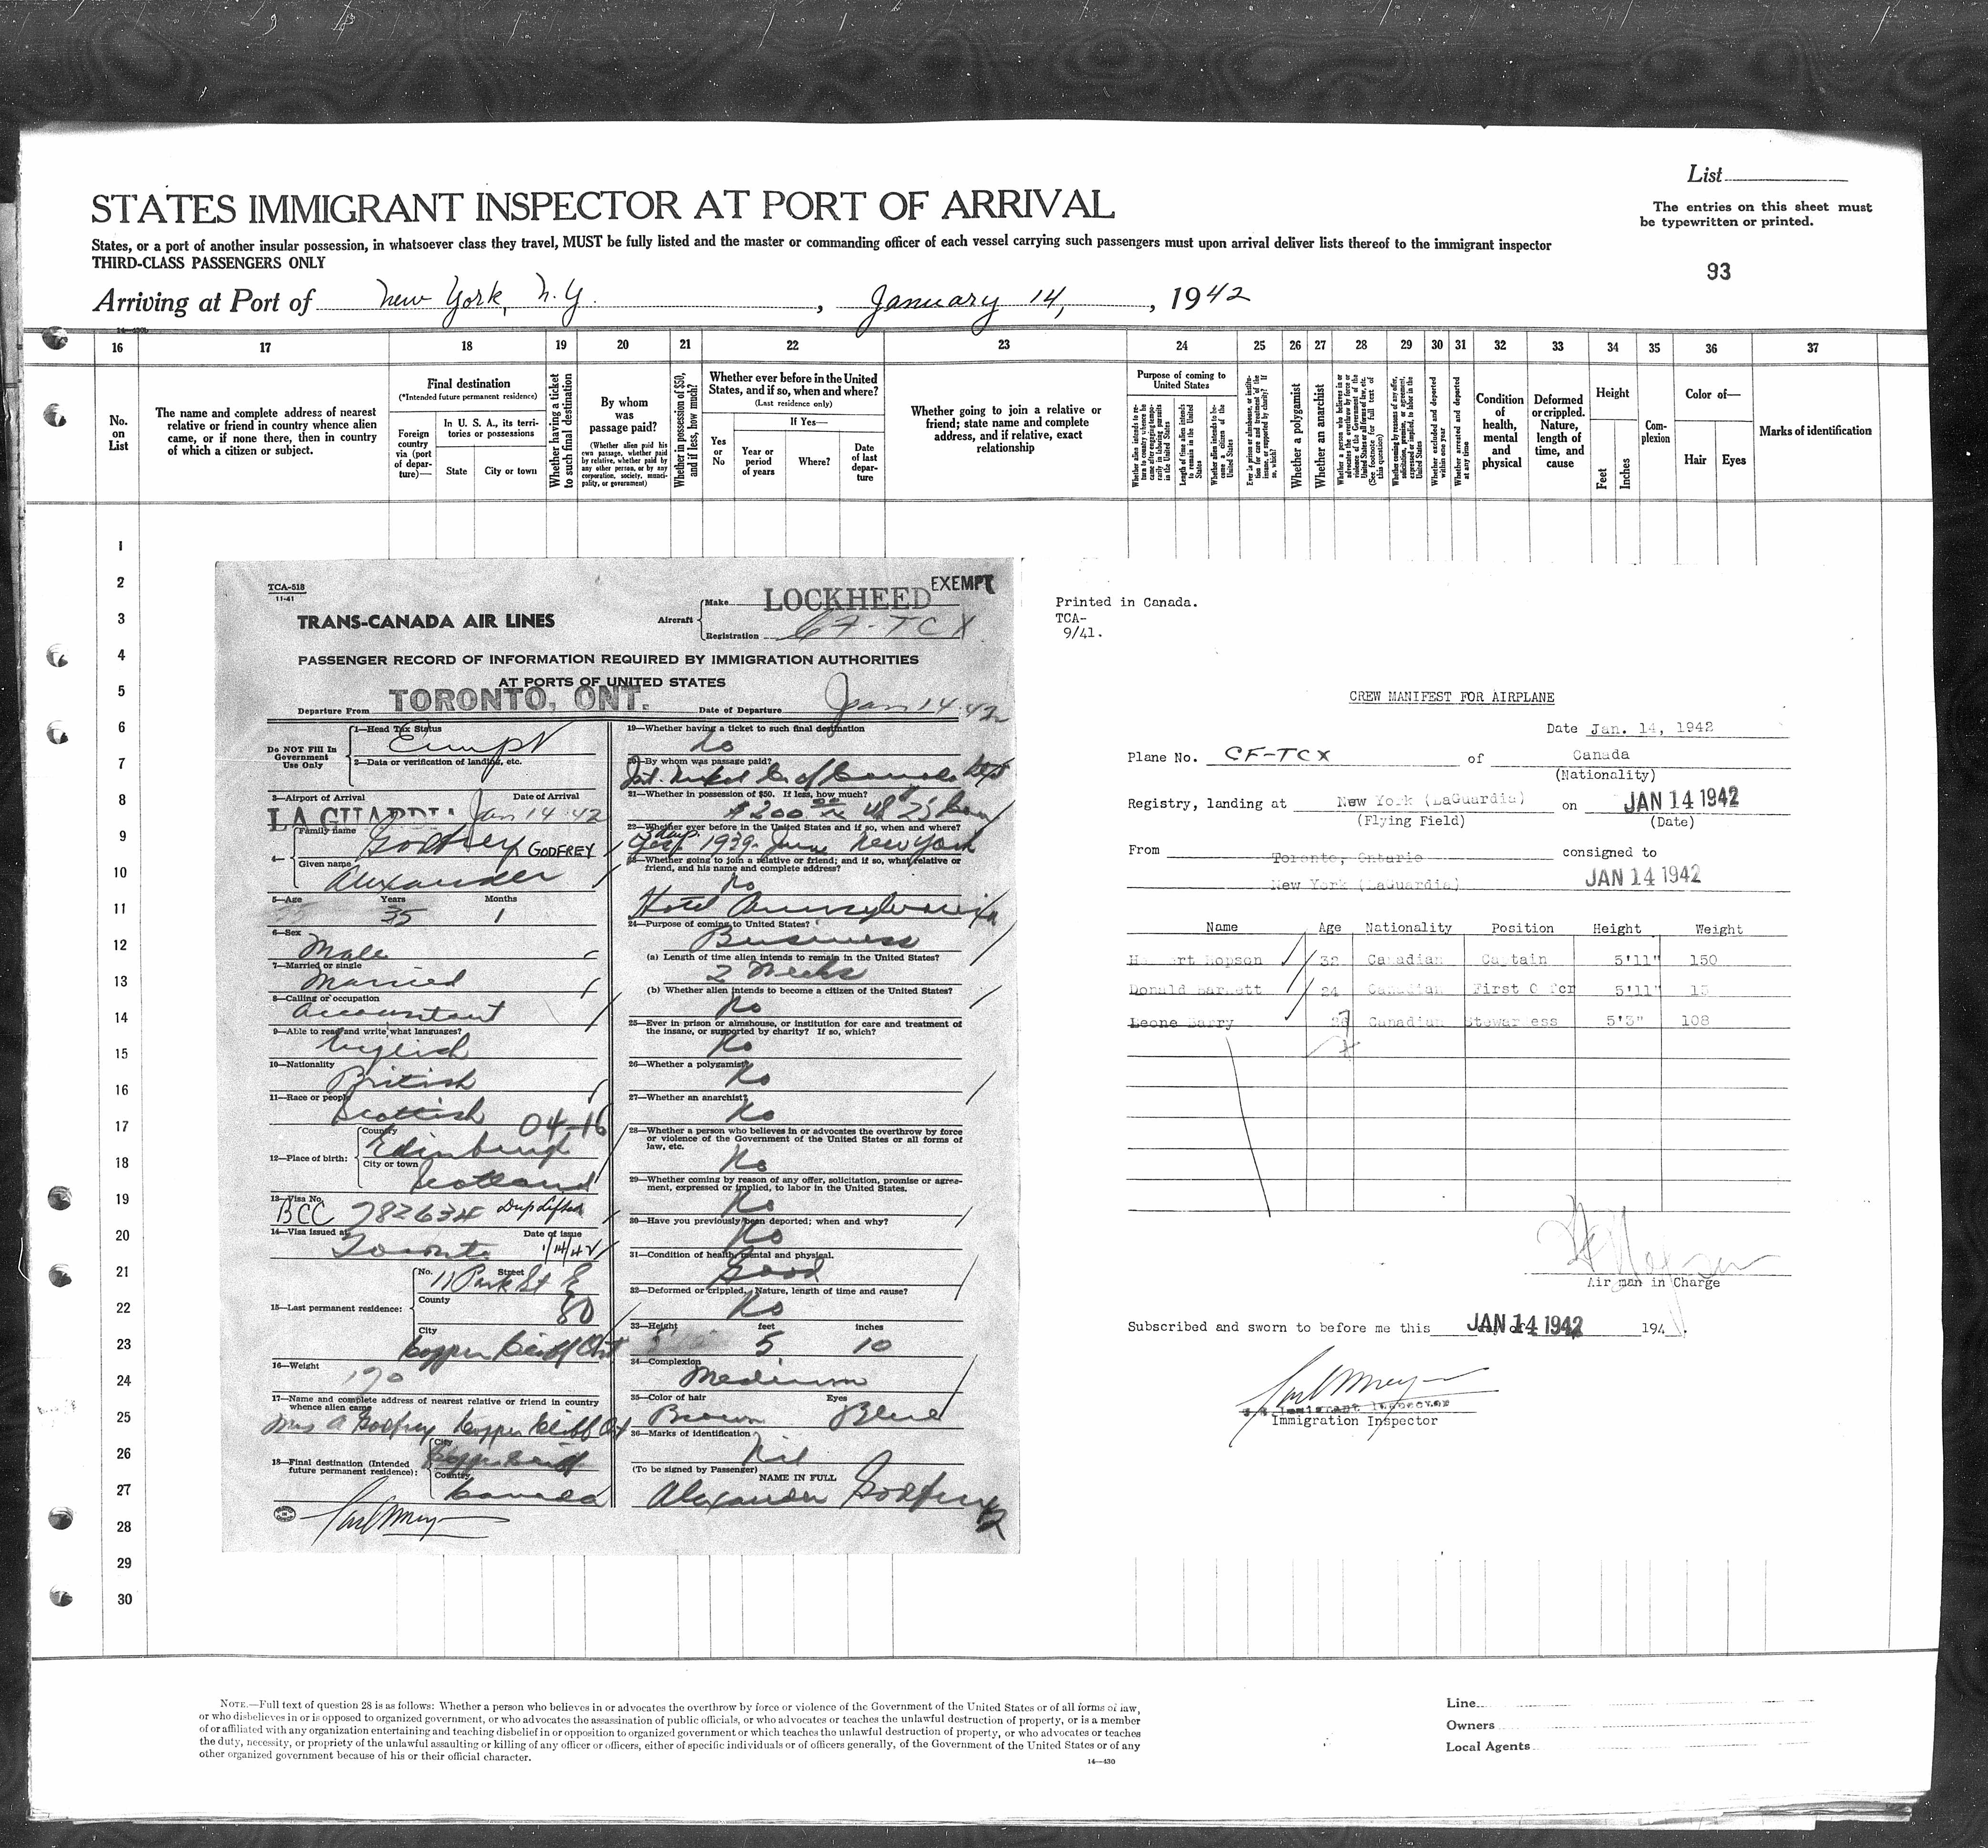 List
The entries on this sheet must
be typewritten or printed.
STATES IMMIGRANT INSPECTOR AT PORT OF ARRIVAL
States, or a port of another insular possession, in whatsoever class they travel, MUST be fully listed and the master or commanding officer of each vessel carrying such passengers must upon arrival deliver lists thereof to the immigrant inspector
THIRD-CLASS PASSENGERS ONLY
93
Arriving at Port of New York, N.Y. , January 14, , 1942
16 17 18 19 20 21 22 23 24 25 26 27 28 29 30 31 32 33 34 35 36 37
No. on List
The name and complete address of nearest relative or friend in country whence alien came, or if none there, then in country of which a citizen or subject.
Final destination
(*Intended future permanent residence)
Foreign country via (port of departure)—
In U. S. A., its territories or possessions
State
City or town
Whether having a ticket to such final destination
By whom was passage paid?
(Whether alien paid his own passage, whether paid by relative, whether paid by any other person, or by any corporation, society, municipality, or government)
Whether in possession of $50, and if less, how much?
Whether ever before in the United States, and if so, when and where?
(Last residence only)
Yes or No
If Yes—
Year or period of years
Where?
Date of last departure
Whether going to join a relative or friend; state name and complete address, and if relative, exact relationship
Purpose of coming to United States
Whether alien intends to return to country whence he came after engaging temporarily in laboring pursuits in the United States
Length of time alien intends to remain in the United States
Whether alien intends to become a citizen of the United States
Ever in prison or almshouse, or institution for care and treatment of the insane, or supported by charity? If so, which?
Whether a polygamist
Whether an anarchist
Whether coming by reason of any offer, solicitation, promise, or agreement, expressed or implied, to labor in the United States
Whether excluded and deported within one year
Whether arrested and deported at any time
Condition of health, mental and physical
Deformed or crippled. Nature, length of time, and cause
Height
Feet
Inches
Complexion
Color of—
Hair
Eyes
Marks of identification
1
2
3
4
5
6
7
8
9
10
11
12
13
14
15
16
17
18
19
20
21
22
23
24
25
26
27
28
29
30
TCA-518
11-41
TRANS-CANADA AIR LINES
Aircraft
Make LOCKHEED
EXEMPT
Registration CF-TCX
PASSENGER RECORD OF INFORMATION REQUIRED BY IMMIGRATION AUTHORITIES
AT PORTS OF UNITED STATES
Departure From TORONTO, ONT. Date of Departure Jan 14 42
Do NOT Fill In Government Use Only
1—Head Tax Status
2—Data or verification of landing, etc.
3—Airport of Arrival Date of Arrival
LA GUARDIA Jan 14 42
4—
Family name Godfrey GODFREY
Given name Alexander
5—Age Years Months
35 1
6—Sex
Male
7—Married or single
Married
8—Calling or occupation
Accountant
9—Able to read and write what languages?
English
10—Nationality
British
11—Race or people
Scottish 04-16
12—Place of birth:
Country
Edinburgh
City or town
Scotland
13—Visa No.
BCC 782634 Dup Lifted
14—Visa issued at Date of issue
Toronto 1/14/42
15—Last permanent residence:
No. Street
11 Park St E
County
80
City
Copper Cliff Ont
16—Weight
170
17—Name and complete address of nearest relative or friend in country whence alien came
Mrs A Godfrey Copper Cliff Ont
18—Final destination (Intended future permanent residence):
City
Copper Cliff
Country
Canada
19—Whether having a ticket to such final destination
No
20—By whom was passage paid?
Int. Nickel Co of Canada
21—Whether in possession of $50. If less, how much?
$200.00
22—Whether ever before in the United States and if so, when and where?
1939 June New York
23—Whether going to join a relative or friend; and if so, what relative or friend, and his name and complete address?
No
Hotel Pennsylvania
24—Purpose of coming to United States?
Business
(a) Length of time alien intends to remain in the United States?
2 Weeks
(b) Whether alien intends to become a citizen of the United States?
No
25—Ever in prison or almshouse, or institution for care and treatment of the insane, or supported by charity? If so, which?
No
26—Whether a polygamist?
No
27—Whether an anarchist?
No
28—Whether a person who believes in or advocates the overthrow by force or violence of the Government of the United States or all forms of law, etc.
No
29—Whether coming by reason of any offer, solicitation, promise or agreement, expressed or implied, to labor in the United States.
No
30—Have you previously been deported; when and why?
No
31—Condition of health, mental and physical.
Good
32—Deformed or crippled. Nature, length of time and cause?
No
33—Height feet inches
5 10
34—Complexion
Medium
35—Color of hair Eyes
Brown Blue
36—Marks of identification
Nil
(To be signed by Passenger) NAME IN FULL
Alexander Godfrey
Printed in Canada.
TCA-
9/41.
CREW MANIFEST FOR AIRPLANE
Date Jan. 14, 1942
Plane No. CF-TCX of Canada
(Nationality)
Registry, landing at New York (LaGuardia) on JAN 14 1942
(Flying Field) (Date)
From Toronto, Ontario consigned to
New York (LaGuardia) JAN 14 1942
Name Age Nationality Position Height Weight
Hopson 32 Canadian Captain 5'11" 150
Donald Barnett 24 Canadian First 5'11"
Leone Barry Canadian Stewardess 5'3" 108
Air man in Charge
Subscribed and sworn to before me this JAN 14 1942 day of 194 .
Immigrant Inspector
Immigration Inspector
NOTE.—Full text of question 28 is as follows: Whether a person who believes in or advocates the overthrow by force or violence of the Government of the United States or of all forms of law,
or who disbelieves in or is opposed to organized government, or who advocates the assassination of public officials, or who advocates or teaches the unlawful destruction of property, or is a member
of or affiliated with any organization entertaining and teaching disbelief in or opposition to organized government or which teaches the unlawful destruction of property, or who advocates or teaches
the duty, necessity, or propriety of the unlawful assaulting or killing of any officer or officers, either of specific individuals or of officers generally, of the Government of the United States or of any
other organized government because of his or their official character.
14—430
Line
Owners
Local Agents